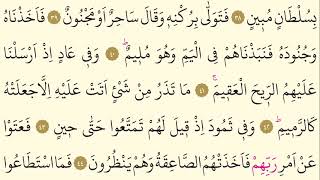 بِسُلْطَانٍ مُبٖينٍ ﴿٣٨﴾ فَتَوَلّٰى بِرُكْنِهٖ وَقَالَ سَاحِرٌ اَوْ مَجْنُونٌ ﴿٣٩﴾ فَاَخَذْنَاهُ
وَجُنُودَهُ فَنَبَذْنَاهُمْ فِي الْيَمِّ وَهُوَ مُلٖيمٌ ﴿٤٠﴾ وَفٖي عَادٍ اِذْ اَرْسَلْنَا
عَلَيْهِمُ الرّٖيحَ الْعَقٖيمَ ﴿٤١﴾ مَا تَذَرُ مِنْ شَيْءٍ اَتَتْ عَلَيْهِ اِلَّا جَعَلَتْهُ
كَالرَّمٖيمِ ﴿٤٢﴾ وَفٖي ثَمُودَ اِذْ قٖيلَ لَهُمْ تَمَتَّعُوا حَتّٰى حٖينٍ ﴿٤٣﴾ فَعَتَوْا
عَنْ اَمْرِ رَبِّهِمْ فَاَخَذَتْهُمُ الصَّاعِقَةُ وَهُمْ يَنْظُرُونَ ﴿٤٤﴾ فَمَا اسْتَطَاعُوا